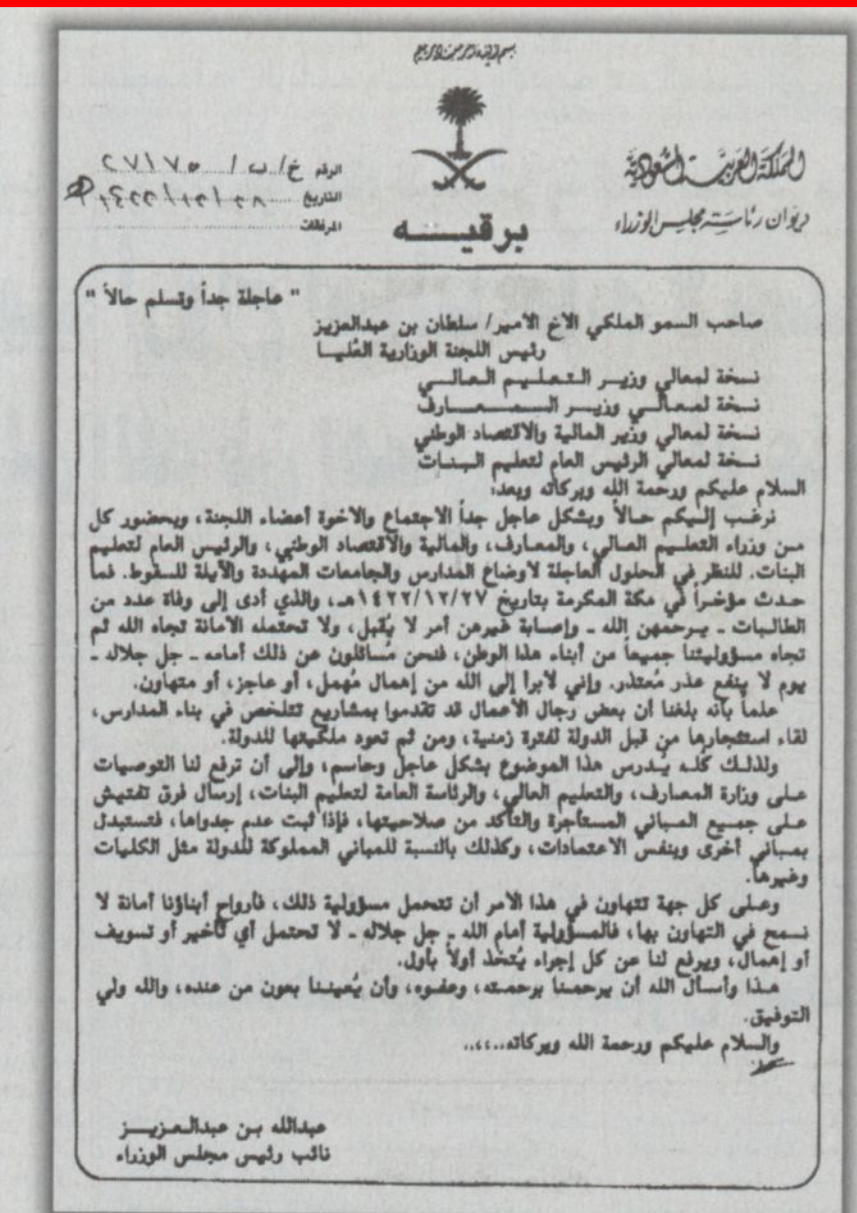 بسم الله الرحمن الرحيم
المملكة العربية السعودية
ديوان رئاسة مجلس الوزراء
الرقم خ/ب/ ٢٧١٧٥
التاريخ ٢٨/١٢/١٤٢٢هـ
المرفقات
برقيـــه
" عاجلة جداً وتسلم حالاً "
صاحب السمو الملكي الاخ الامير/ سلطان بن عبدالعزيز
رئيس اللجنة الوزارية العُليـا
نسخة لمعالي وزيــر الـتـعـلـيـم الـعـالــي
نسخة لمعـالــي وزيــر الـــمـــعـــارف
نسخة لمعالي وزير المالية والاقتصاد الوطني
نسخة لمعالي الرئيس العام لتعليم الـبـنـات
السلام عليكم ورحمة الله وبركاته وبعد:
نرغـب إلـيكم حـالاً وبشكل عاجل جداً الاجتماع والاخوة أعضاء اللجنة، وبحضور كل
مـن وزراء التعلـيم العـالي، والمعـارف، والمالية والاقتصاد الوطني، والرئيس العام لتعليم
البنات. للنظر في الحلول العاجلة لاوضاع المدارس والجامعات المهددة والآيلة للسقوط. فما
حـدث مؤخـراً في مكة المكرمة بتاريخ ١٤٢٢/١٢/٢٧هـ، والذي أدى إلى وفاة عدد من
الطالـبات ـ يـرحمهن الله ـ وإصـابة غيرهن أمر لا يُقبل، ولا تحتمله الامانة تجاه الله ثم
تجاه مسؤوليتنا جميعاً من أبناء هذا الوطن، فنحن مُسائلون عن ذلك أمامه ـ جل جلاله ـ
يوم لا ينفع عذر مُعتذر. وإني لابرأ إلى الله من إهمال مُهمل، أو عاجز، أو متهاون.
علماً بأنه بلغنا أن بعض رجال الاعمال قد تقدموا بمشاريع تتلخص في بناء المدارس،
لقاء استئجارها من قبل الدولة لفترة زمنية، ومن ثم تعود ملكيتها للدولة.
ولذلـك كُلـه يُـدرس هذا الموضوع بشكل عاجل وحاسم، وإلى أن ترفع لنا التوصيات
عـلى وزارة المعـارف، والتعليم العالي، والرئاسة العامة لتعليم البنات، إرسال فرق تفتيش
عـلى جمـيع المـباني المسـتأجرة والتأكد من صلاحيتها، فإذا ثبت عدم جدواها، فتستبدل
بمباني أخرى وبنفس الاعتمادات، وكذلك بالنسبة للمباني المملوكة للدولة مثل الكليات
وغيرها.
وعـلى كل جهة تتهاون في هذا الامر أن تتحمل مسؤولية ذلك، فأرواح أبناؤنا أمانة لا
نسمح في التهاون بها، فالمسؤولية أمام الله ـ جل جلاله ـ لا تحتمل أي تأخير أو تسويف
أو إهمال، ويرفع لنا عن كل إجراء يُتخذ أولاً بأول.
هـذا وأسـأل الله أن يرحمـنا برحمـته، وعفـوه، وأن يُعينـنا بعون من عنده، والله ولي
التوفيق.
والسلام عليكم ورحمة الله وبركاته..،،..
عبدالله بن عبدالـعـزيــز
نائب رئيس مجلس الوزراء